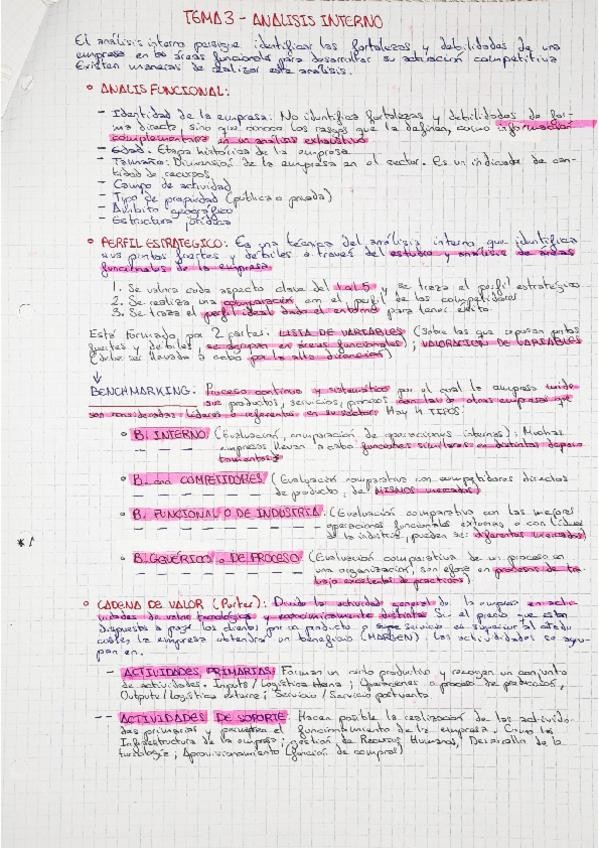 TEMA 3 - ANALISIS INTERNO
El análisis interno persigue identificar las fortalezas y debilidades de una
empresa en las áreas funcionales para desarrollar su actuación competitiva
Existen maneras de realizar este análisis.
• ANALIS FUNCIONAL:
- Identidad de la empresa: No identifica fortalezas y debilidades de for-
ma directa, sino que conoce los rasgos que la definen, como información
complementaria en un análisis exhaustivo
- Edad: Etapa histórica de la empresa
- Tamaño: Dimensión de la empresa en el sector. Es un indicador de can-
tidad de recursos
- Campo de actividad
- Tipo de propiedad (pública o privada)
- Ámbito geográfico
- Estructura jurídica
• PERFIL ESTRATEGICO: Es una técnica del análisis interno que identifica
sus puntos fuertes y débiles a través del estudio y análisis de áreas
funcionales de la empresa
1. Se valora cada aspecto clave del 1 al 5 y se traza el perfil estratégico
2. Se realiza una comparación con el perfil de los competidores
3. Se traza el perfil ideal dado el entorno para tener éxito
Está formado por 2 partes: LISTA DE VARIABLES (Sobre las que reposan puntos
fuertes y débiles, se agrupan en áreas funcionales); VALORACION DE VARIABLES
(debe ser llevada a cabo por la alta dirección)
↓
BENCHMARKING: Proceso continuo y sistemático por el cual la empresa mide
sus productos, servicios, procesos con las de otras empresas que
son consideradas líderes o referentes en su sector. Hay 4 TIPOS:
• B. INTERNO (Evaluación, comparación de operaciones internas): Muchas
empresas llevan a cabo funciones similares en distintos depar-
tamentos
• B. COMPETIDORES (Evaluación comparativa con competidores directos
de producto, de MISMOS mercados)
• B. FUNCIONAL O DE INDUSTRIA (Evaluación comparativa con las mejores
operaciones funcionales externas, o con líderes
de la industria, pueden ser diferentes mercados)
* 1
• B. GENÉRICO o DE PROCESO (Evaluación comparativa de un proceso en
una organización, son en procesos de tra-
bajo excelentes)
• CADENA DE VALOR (Porter): Divide la actividad general de la empresa en acti-
vidades de valor tecnológica y económicamente distintas. Si el precio que están
dispuestos a pagar los clientes por un producto o servicio es superior al
coste, la empresa obtendrá un beneficio (MARGEN). Las actividades se agru-
pan en.
- ACTIVIDADES PRIMARIAS: Forman un ciclo productivo y recogen un conjunto
de actividades. Inputs/logística interna; Operaciones o proceso de producción,
Outputs/logística externa; Servicio/Servicio postventa
- ACTIVIDADES DE SOPORTE: Hacen posible la realización de las activida-
des primarias y el funcionamiento de la empresa. Como la
Infraestructura de la empresa; gestión de Recursos Humanos, Desarrollo de la
tecnología; Aprovisionamiento (función de compras)